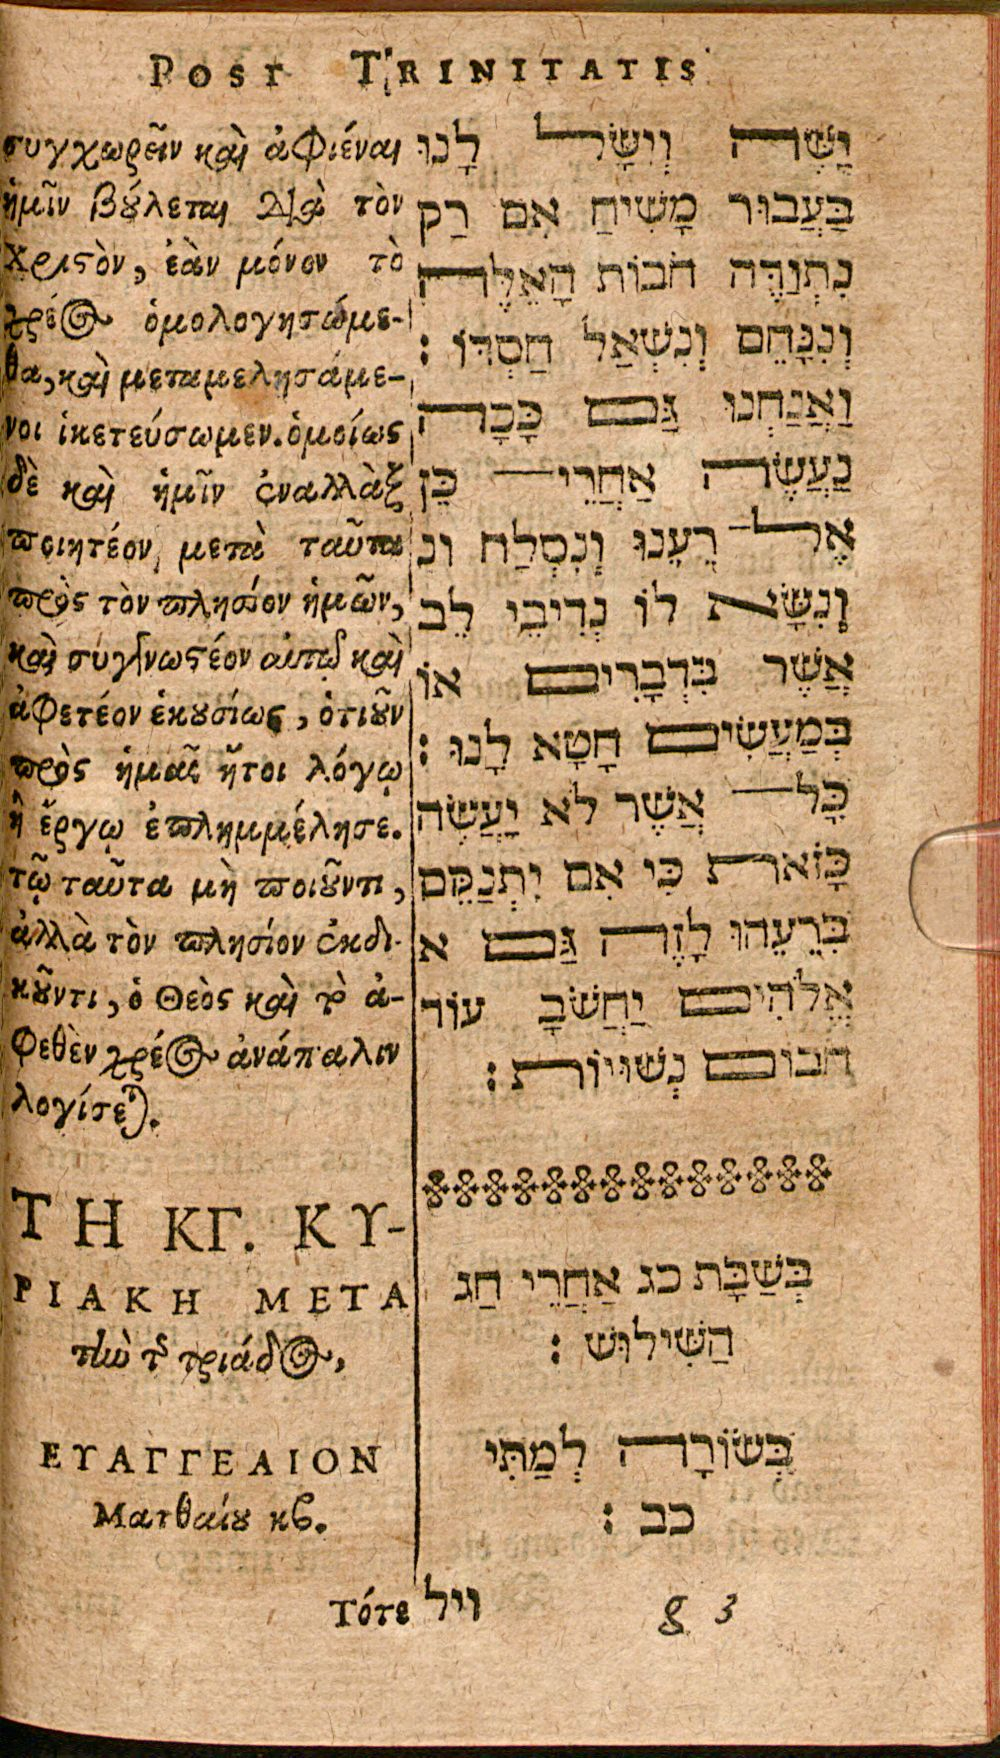 POST TRINITATIS
συγχωρεῖν καὶ ἀφιέναι
ἡμῖν βούλεται διὰ τὸν
Χριστὸν, ἐὰν μόνον τὸ
χρέος ὁμολογησώμε-
θα, καὶ μεταμελησάμε-
νοι ἱκετεύσωμεν. ὁμοίως
δὲ καὶ ἡμῖν ἐναλλὰξ
ποιητέον μετὰ ταῦτα
πρὸς τὸν πλησίον ἡμῶν,
καὶ συγγνωστέον αὐτῷ καὶ
ἀφετέον ἑκουσίως, ὁτιοῦν
πρὸς ἡμᾶς ἤτοι λόγῳ
ἢ ἔργῳ ἐπλημμέλησε.
τῷ ταῦτα μὴ ποιοῦντι,
ἀλλὰ τὸν πλησίον ἐκδι-
κοῦντι, ὁ Θεὸς καὶ τὸ ἀ-
φεθὲν χρέος ἀνάπαλιν
λογίσεται.
ΤΗ ΚΓ. ΚΥ-
ΡΙΑΚΗ ΜΕΤΑ
τὴν τῆς τριάδος,
ΕΥΑΓΓΕΛΙΟΝ
Ματθαίου κβ.
Τότε
יַשֶּׁה וְיִשָּׂל לָנוּ
בַּעֲבוּר מָשִׁיחַ אִם רַק
נִתְוַדֶּה חֹבוֹת הָאֵלֶּה
וְנִנָּחֵם וְנִשְׁאַל חַסְדּוֹ :
וַאֲנַחְנוּ גַּם כָּכָה
נַעֲשֶׂה אַחֲרֵי כֵּן
אֶל רֵעֵנוּ וְנִסְלַח וּנ
וְנִשָּׂא לוֹ נְדִיבֵי לֵב
אֲשֶׁר בִּדְבָרִים אוֹ
בְּמַעֲשִׂים חָטָא לָנוּ :
כָּל אֲשֶׁר לֹא יָעֲשֶׂה
כָּזֹאת כִּי אִם יִתְנַקֵּם
בְּרֵעֵהוּ לָזֶה גַּם א
אֱלֹהִים יַחֲשֹׁב עוֹד
חֹבוֹם נְשׁוּיוֹת :
בְּשַׁבָּת כג אַחֲרֵי חַג
הַשִּׁילוּשׁ :
בְּשׂוֹרָה לְמַתִּי
כב :
ויל
g 3